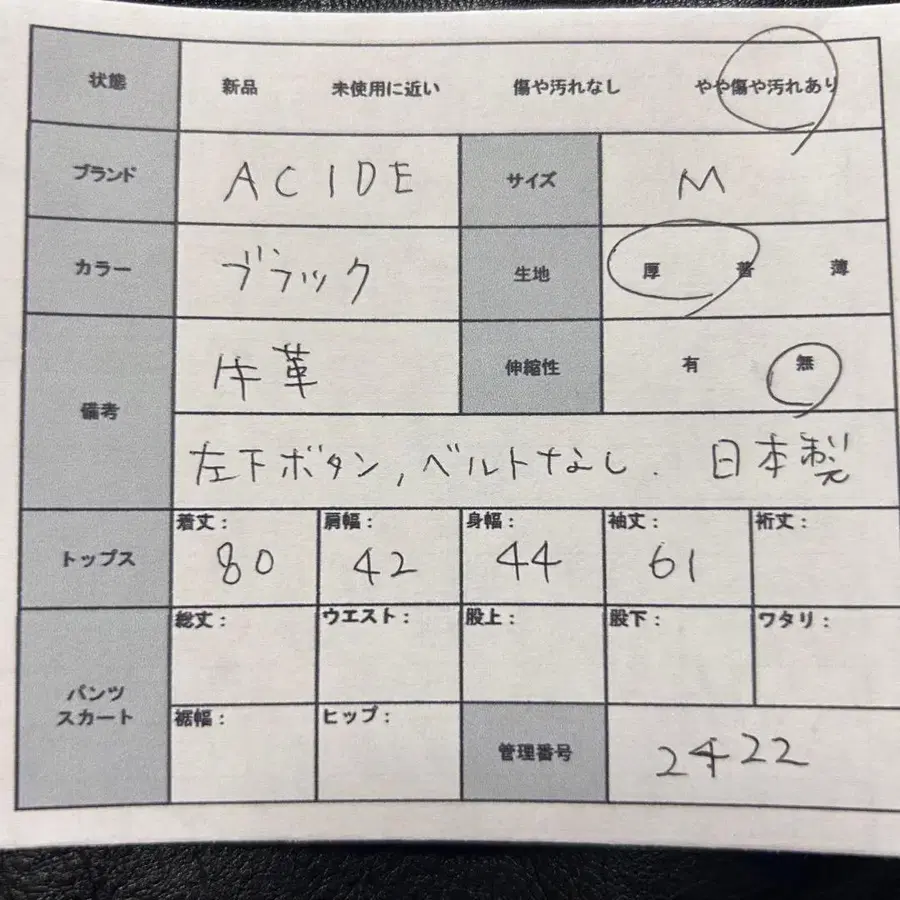 状態 新品 未使用に近い 傷や汚れなし やや傷や汚れあり
ブランド ACIDE サイズ M
カラー ブラック 生地 厚 普 薄
備考 牛革 伸縮性 有 無
左下ボタン,ベルトなし. 日本製
トップス 着丈: 80 肩幅: 42 身幅: 44 袖丈: 61 裄丈:
パンツ
スカート
総丈: ウエスト: 股上: 股下: ワタリ:
裾幅: ヒップ: 管理番号 2422